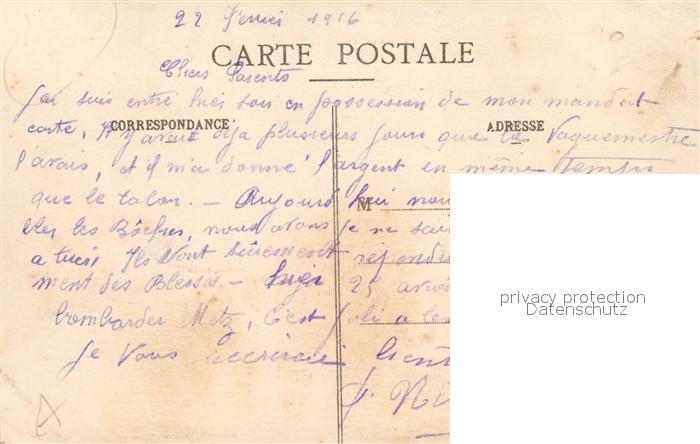 22 Février 1916
CARTE POSTALE
Chers Parents
J'ai suis entré hier soir en possession de mon mandat
CORRESPONDANCE
ADRESSE
carte, Il y avait déja plusieurs jours que le Vaguemestre
l'avais, et il m'a donné l'argent en même temps
que le talon. — Aujourd'hui nou
M
les Bôches, nous avons je ne sai
a tuer, Ils vont sûrement répondre
ment des Blessés. — 25 avion
bombarder Metz, C'est joli a les
Je Vous Ecrirai bient
privacy protection
Datenschutz